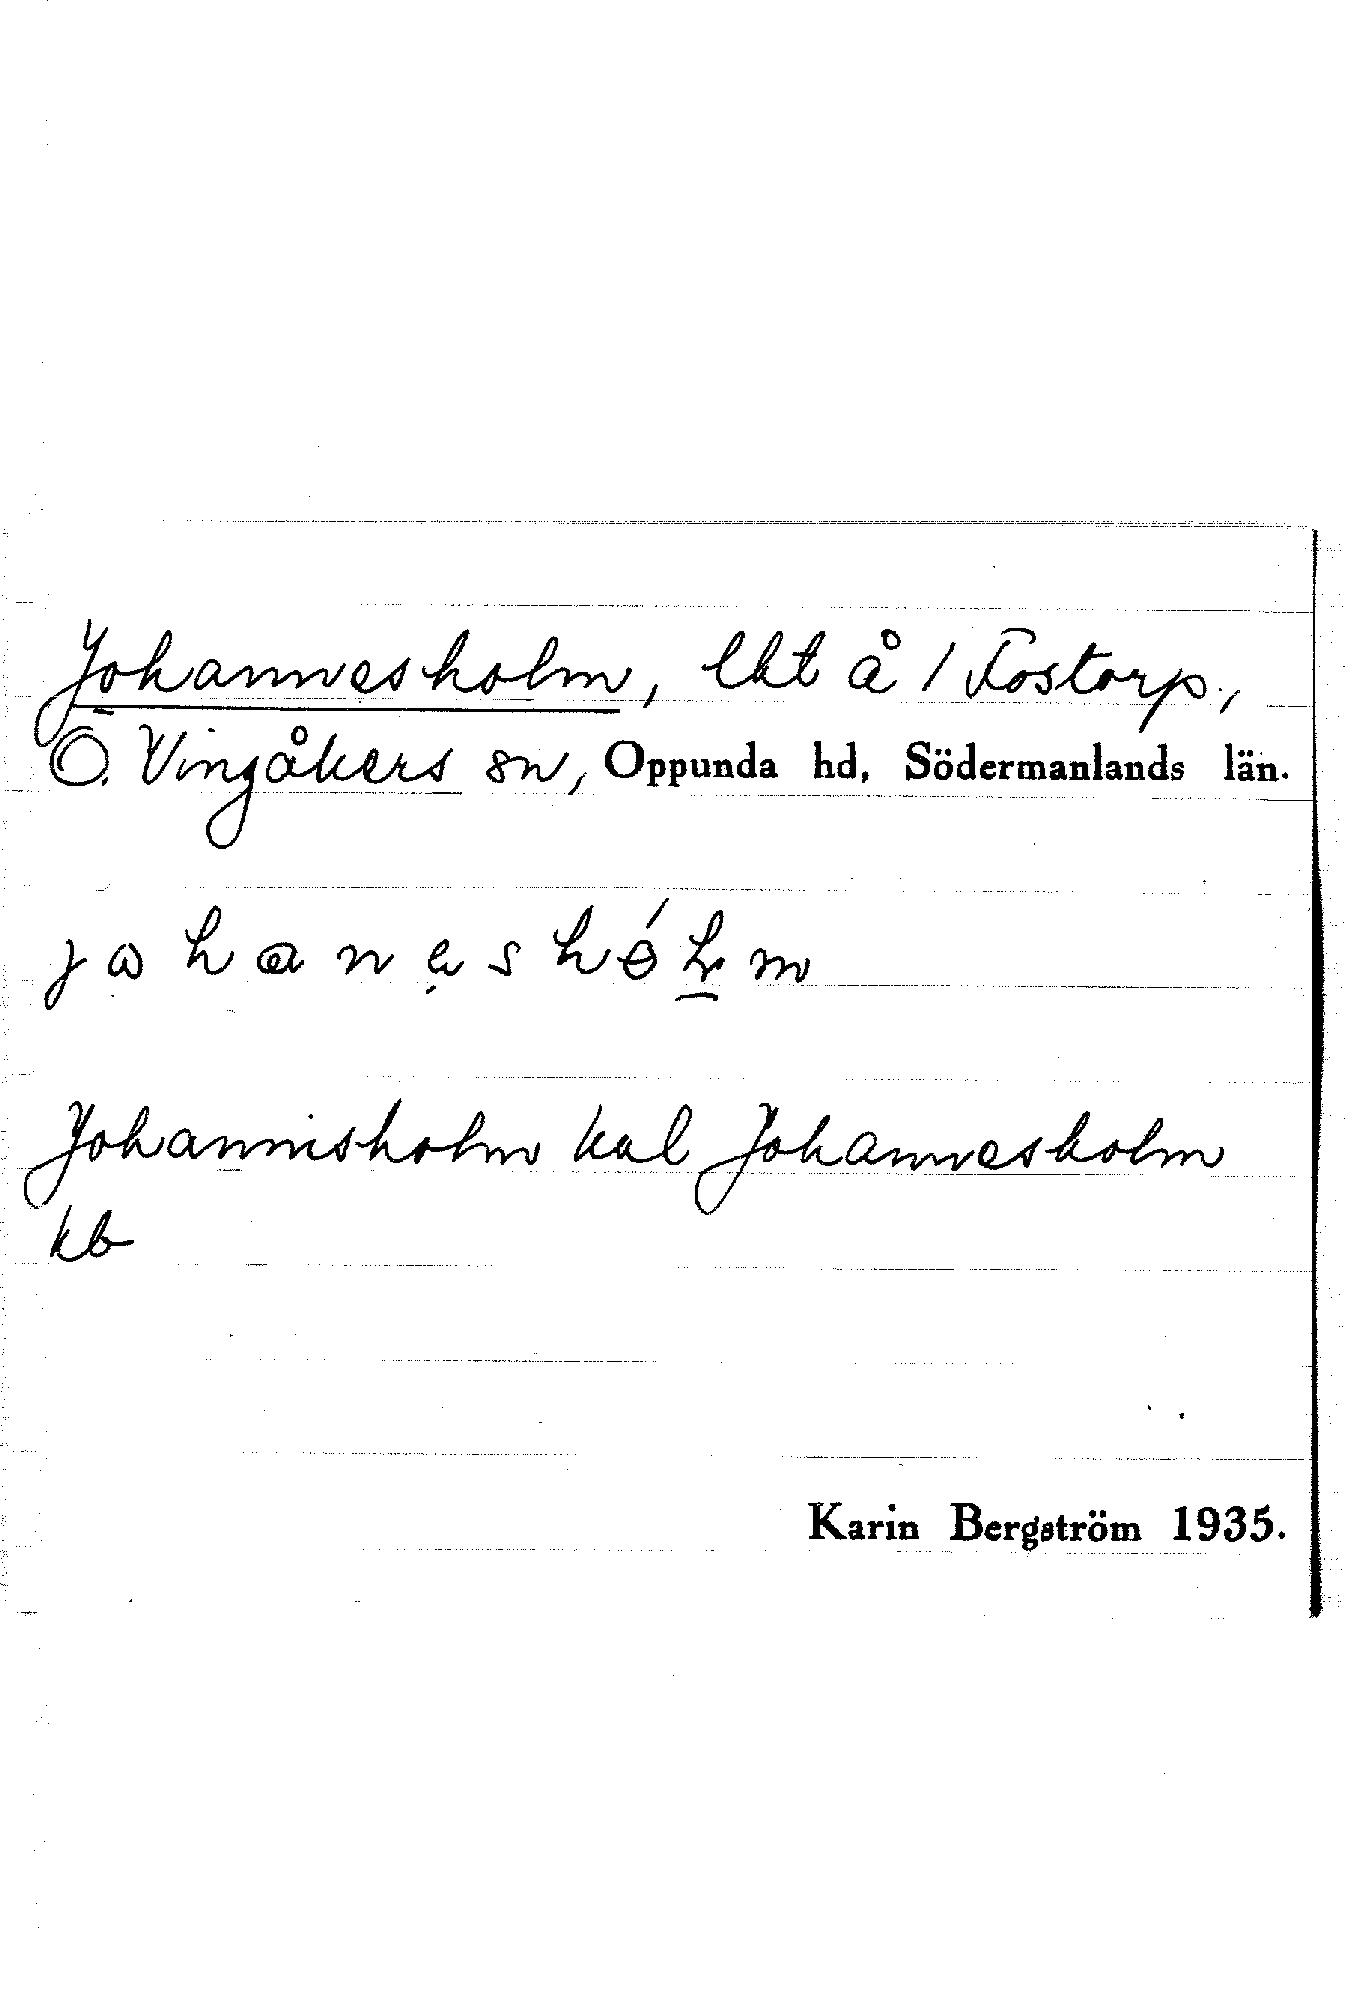 Johannesholm, lht å 1 Fostorp.,
Ö. Vingåkers sn, Oppunda hd, Södermanlands län.
johaneshólm
Johannisholm kal Johannesholm
kb
Karin Bergström 1935.